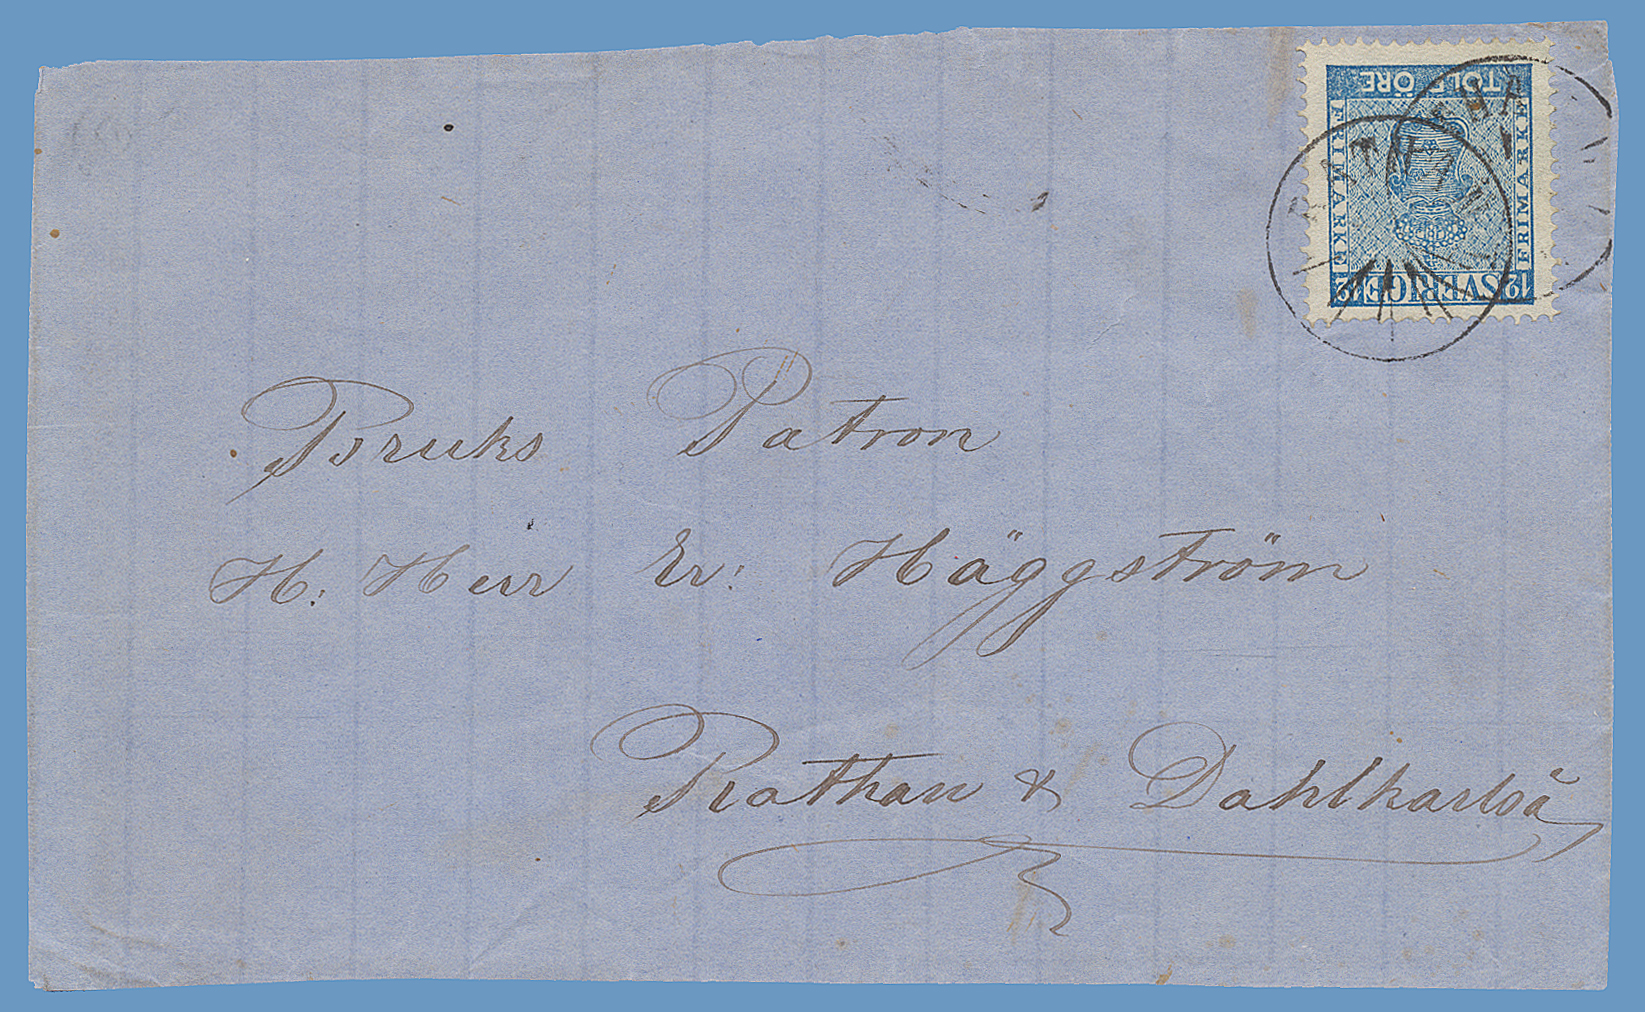 TOLF ÖRE
FRIMÄRKE
FRIMÄRKE
12 SVERIGE 12
RATHAN
Bruks Patron
H. Herr Er: Häggström
Rathan & Dahlkarlså